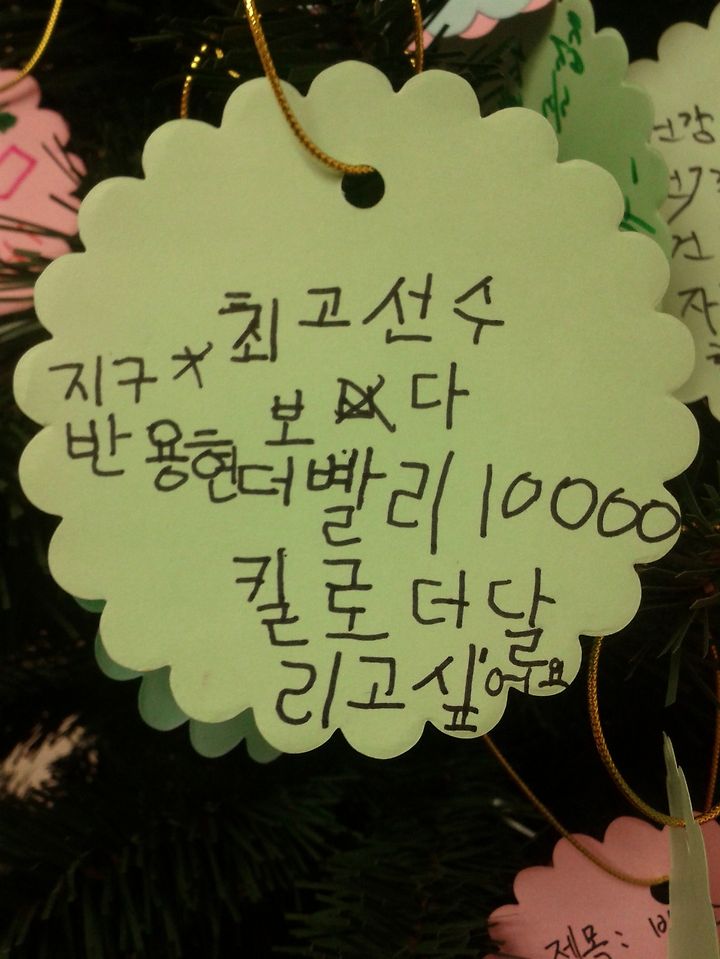 최고선수
지구*
반 용현
보다
더빨리 10000
킬로 더 달
리고싶어요
건강
건
자
제목: